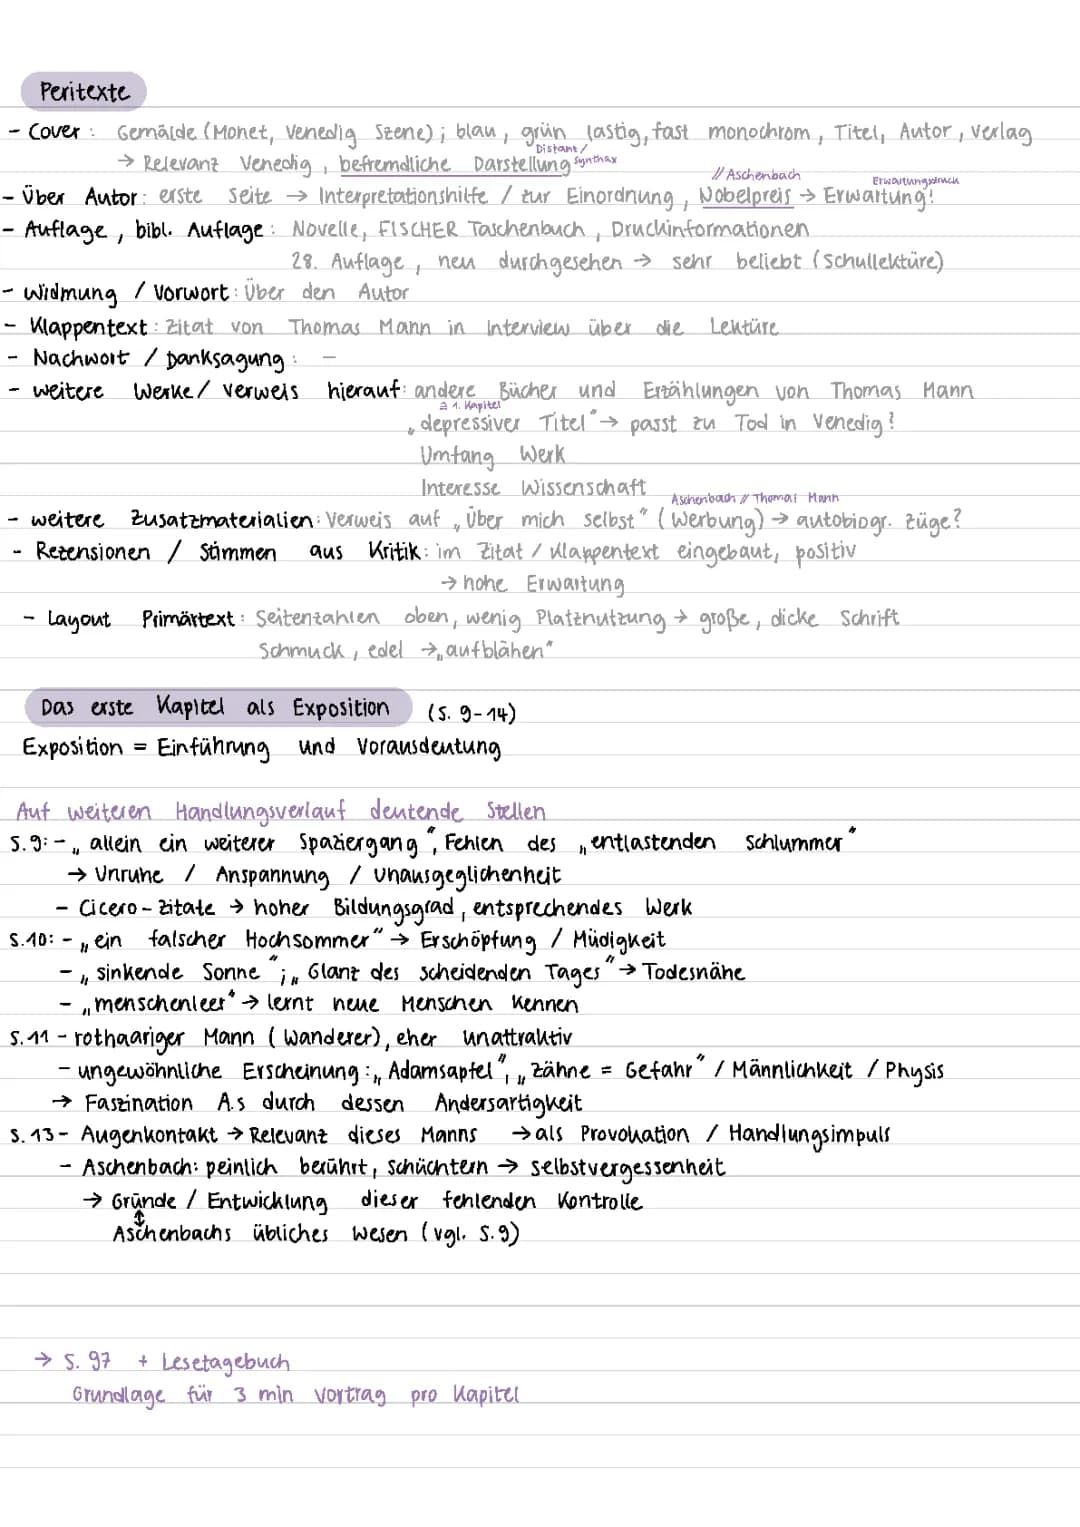 Peritexte
- Cover : Gemälde (Monet, Venedig Szene) ; blau, grün lastig, fast monochrom, Titel, Autor, Verlag
Distanz /
→ Relevanz Venedig, befremdliche Darstellung Synthax
// Aschenbach
Erwartungsdruck
- Über Autor: erste Seite → Interpretationshilfe / zur Einordnung, Nobelpreis → Erwartung!
- Auflage, bibl. Auflage: Novelle, FISCHER Taschenbuch, Druckinformationen
28. Auflage, neu durchgesehen → sehr beliebt (Schullektüre)
- Widmung / Vorwort: Über den Autor
- Klappentext: Zitat von Thomas Mann in Interview über die Lektüre
- Nachwort / Danksagung: -
- weitere Werke / Verweis hierauf: andere Bücher und Erzählungen von Thomas Mann
≙ 1. Kapitel
„depressiver Titel" → passt zu Tod in Venedig!
Umfang Werk
Interesse Wissenschaft
Aschenbach // Thomas Mann
- weitere Zusatzmaterialien: Verweis auf „Über mich selbst" (Werbung) → autobiogr. Züge?
- Rezensionen / Stimmen aus Kritik: im Zitat / Klappentext eingebaut, positiv
→ hohe Erwartung
- Layout Primärtext: Seitenzahlen oben, wenig Platznutzung → große, dicke Schrift
Schmuck, edel → „aufblähen"
Das erste Kapitel als Exposition (S. 9-14)
Exposition = Einführung und Vorausdeutung
Auf weiteren Handlungsverlauf deutende Stellen
S.9: - „allein ein weiterer Spaziergang", Fehlen des „entlastenden Schlummer"
→ Unruhe / Anspannung / Unausgeglichenheit
- Cicero-Zitate → hoher Bildungsgrad, entsprechendes Werk
S.10: - „ein falscher Hochsommer" → Erschöpfung / Müdigkeit
- „sinkende Sonne"; „Glanz des scheidenden Tages" → Todesnähe
- „menschenleer" → lernt neue Menschen kennen
S.11 - rothaariger Mann (Wanderer), eher unattraktiv
- ungewöhnliche Erscheinung: „Adamsapfel", „Zähne = Gefahr" / Männlichkeit / Physis
→ Faszination A.s durch dessen Andersartigkeit
S.13 - Augenkontakt → Relevanz dieses Manns → als Provokation / Handlungsimpuls
- Aschenbach: peinlich berührt, schüchtern → Selbstvergessenheit
→ Gründe / Entwicklung dieser fehlenden Kontrolle
↕
Aschenbachs übliches Wesen (vgl. S.9)
→ S. 97 + Lesetagebuch
Grundlage für 3 min Vortrag pro Kapitel